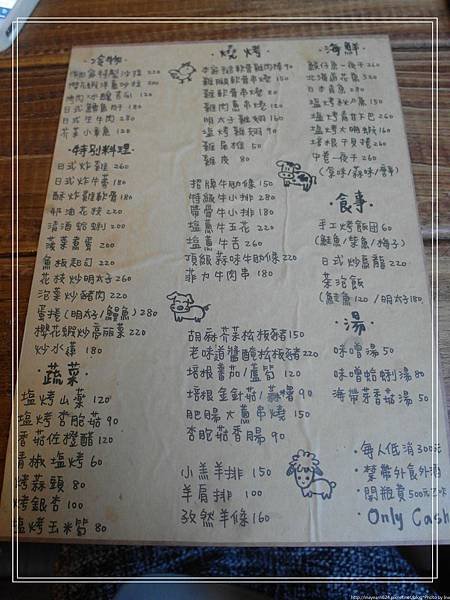 ·冷物·
櫻花蝦洋蔥沙拉 200
烤肉冰醋苦瓜 120
日式生牛肉 280
芥茉小章魚 150
·特別料理·
日式炸雞 260
日式炸牛蒡 180
酥炸雞軟骨 180
奶油花枝 220
清酒蛤蜊 220
菠菜煮蛋 200
魚板起司 220
花枝炒明太子 260
泡菜炒豬肉 220
蛋捲(明太子/鰻魚) 280
櫻花蝦炒高麗菜 220
炒水蓮 180
·蔬菜·
塩烤山藥 120
塩烤杏鮑菇 90
香菇佐橙醋 120
青椒塩烤 60
烤蒜頭 80
烤銀杏 100
塩烤玉米筍 80
·燒烤·
雞軟骨串燒 80
雞肉蔥串燒 150
明太子雞翅 160
塩烤雞翅 90
雞屁雄 50
雞皮 80
招牌牛肋條 150
特級牛小排 280
噴香牛小排 180
塩蔥牛五花 220
塩蔥牛舌 260
頂級蒜味牛肋條 220
菲力牛肉串 180
胡麻芥茉松板豬 150
老味道醬醃松板豬 220
培根番茄/蘆筍 120
培根金針菇/蒜苗 90
肥腸大蔥串燒 150
杏鮑菇香腸 90
小羔羊排 150
羊肩排 100
孜然羊條 160
·海鮮·
塩烤大明蝦 160
培根干貝捲 260
中卷一夜干 260
(原味/蒜味/唐辛)
·食事·
手工烤飯糰 60
(鮭魚/柴魚/梅子)
日式炒烏龍 220
茶泡飯
(鮭魚 120/明太子 180)
·湯·
味噌湯 50
味噌蛤蜊湯 80
海帶芽香菇湯 50
·每人低消300元
·禁帶外食外酒
·開瓶費500元
·Only Cash